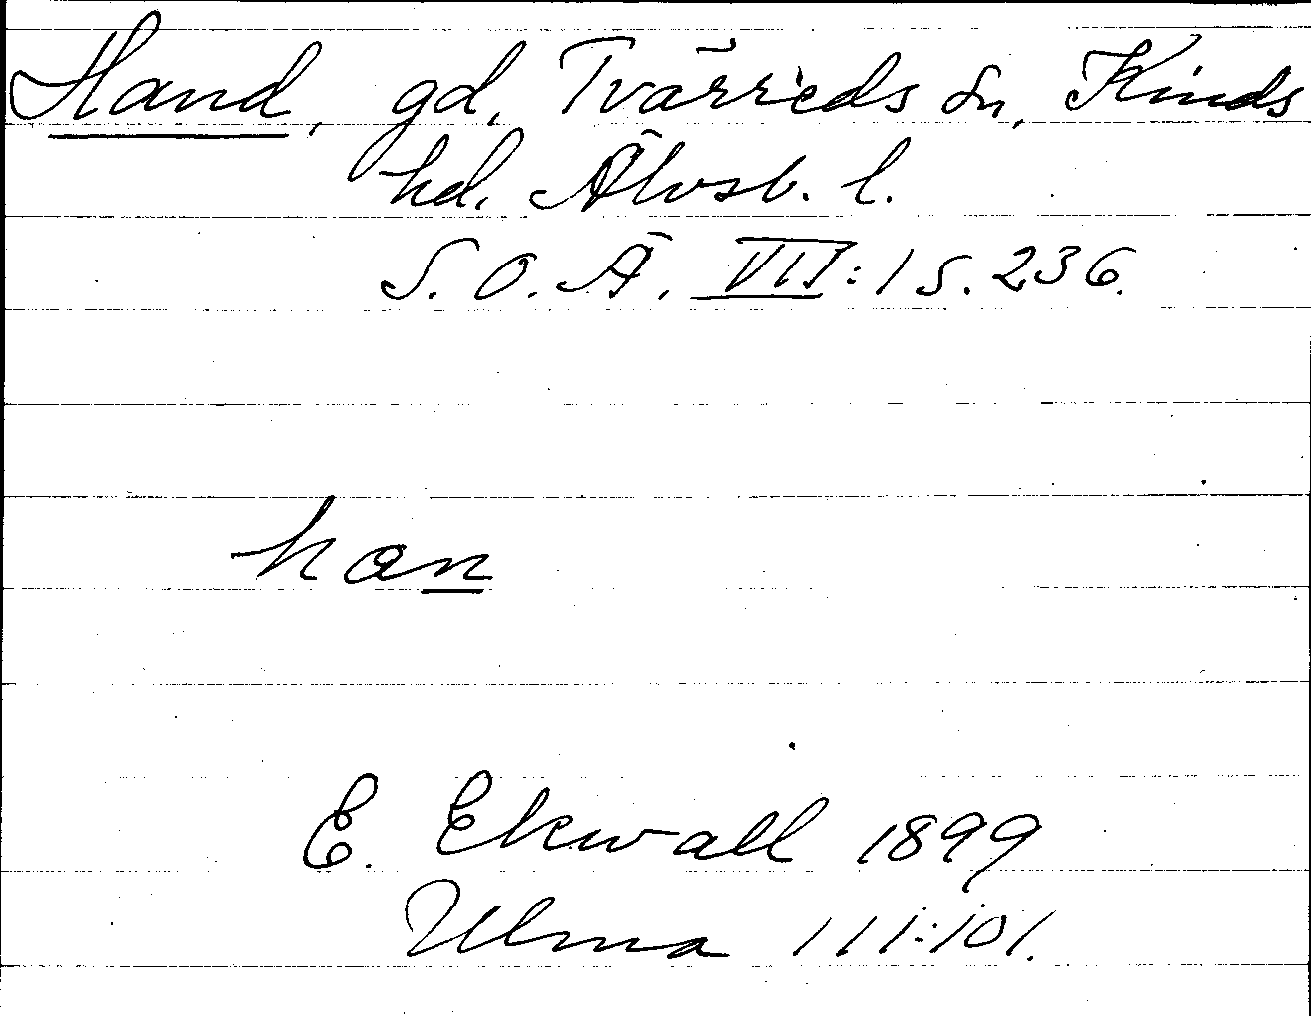 Hand, gd, Tvärreds sn, Kinds
hd. Älvsb. l.
S. O. Ä. VII:1 s. 236.
han
E. Ekwall 1899
Ulma 111:101.